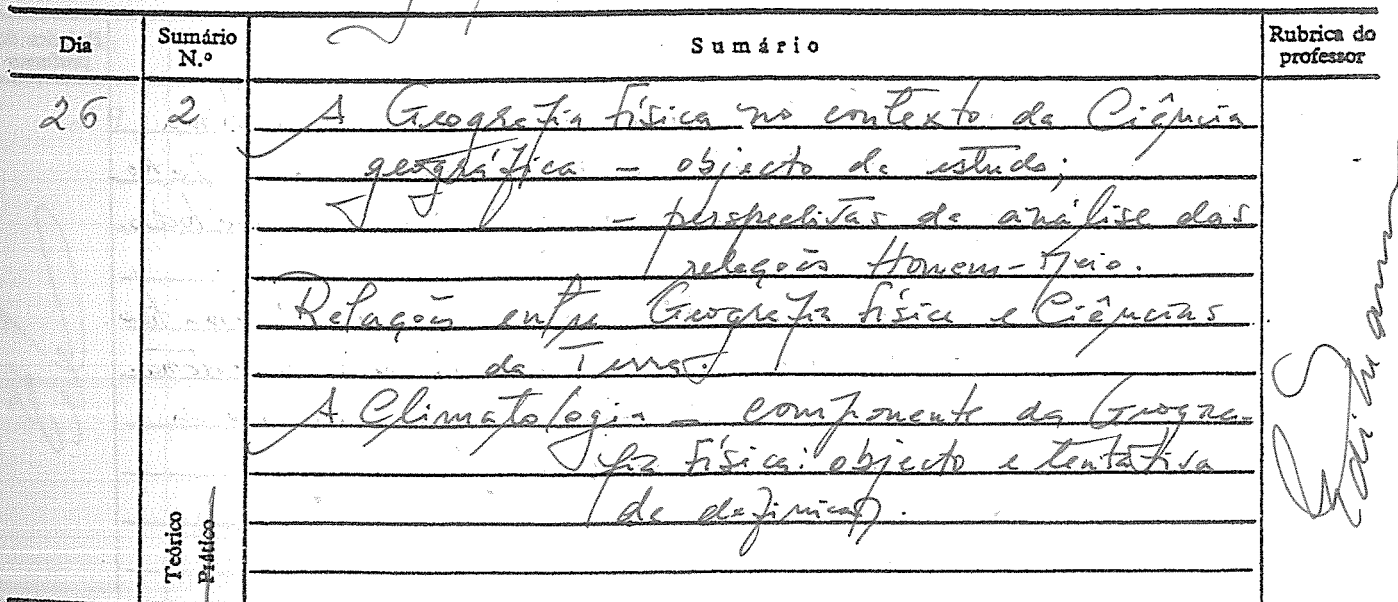 Dia Sumário N.º Sumário Rubrica do professor
26 2 A Geografia física no contexto da Ciência
geográfica - objecto de estudo;
- perspectivas de análise das
relações Homem-Meio.
Relações entre Geografia física e Ciências
da Terra.
A Climatologia - componente da Geogra-
fia física: objecto e tentativa
de definição.
Teórico
Prático